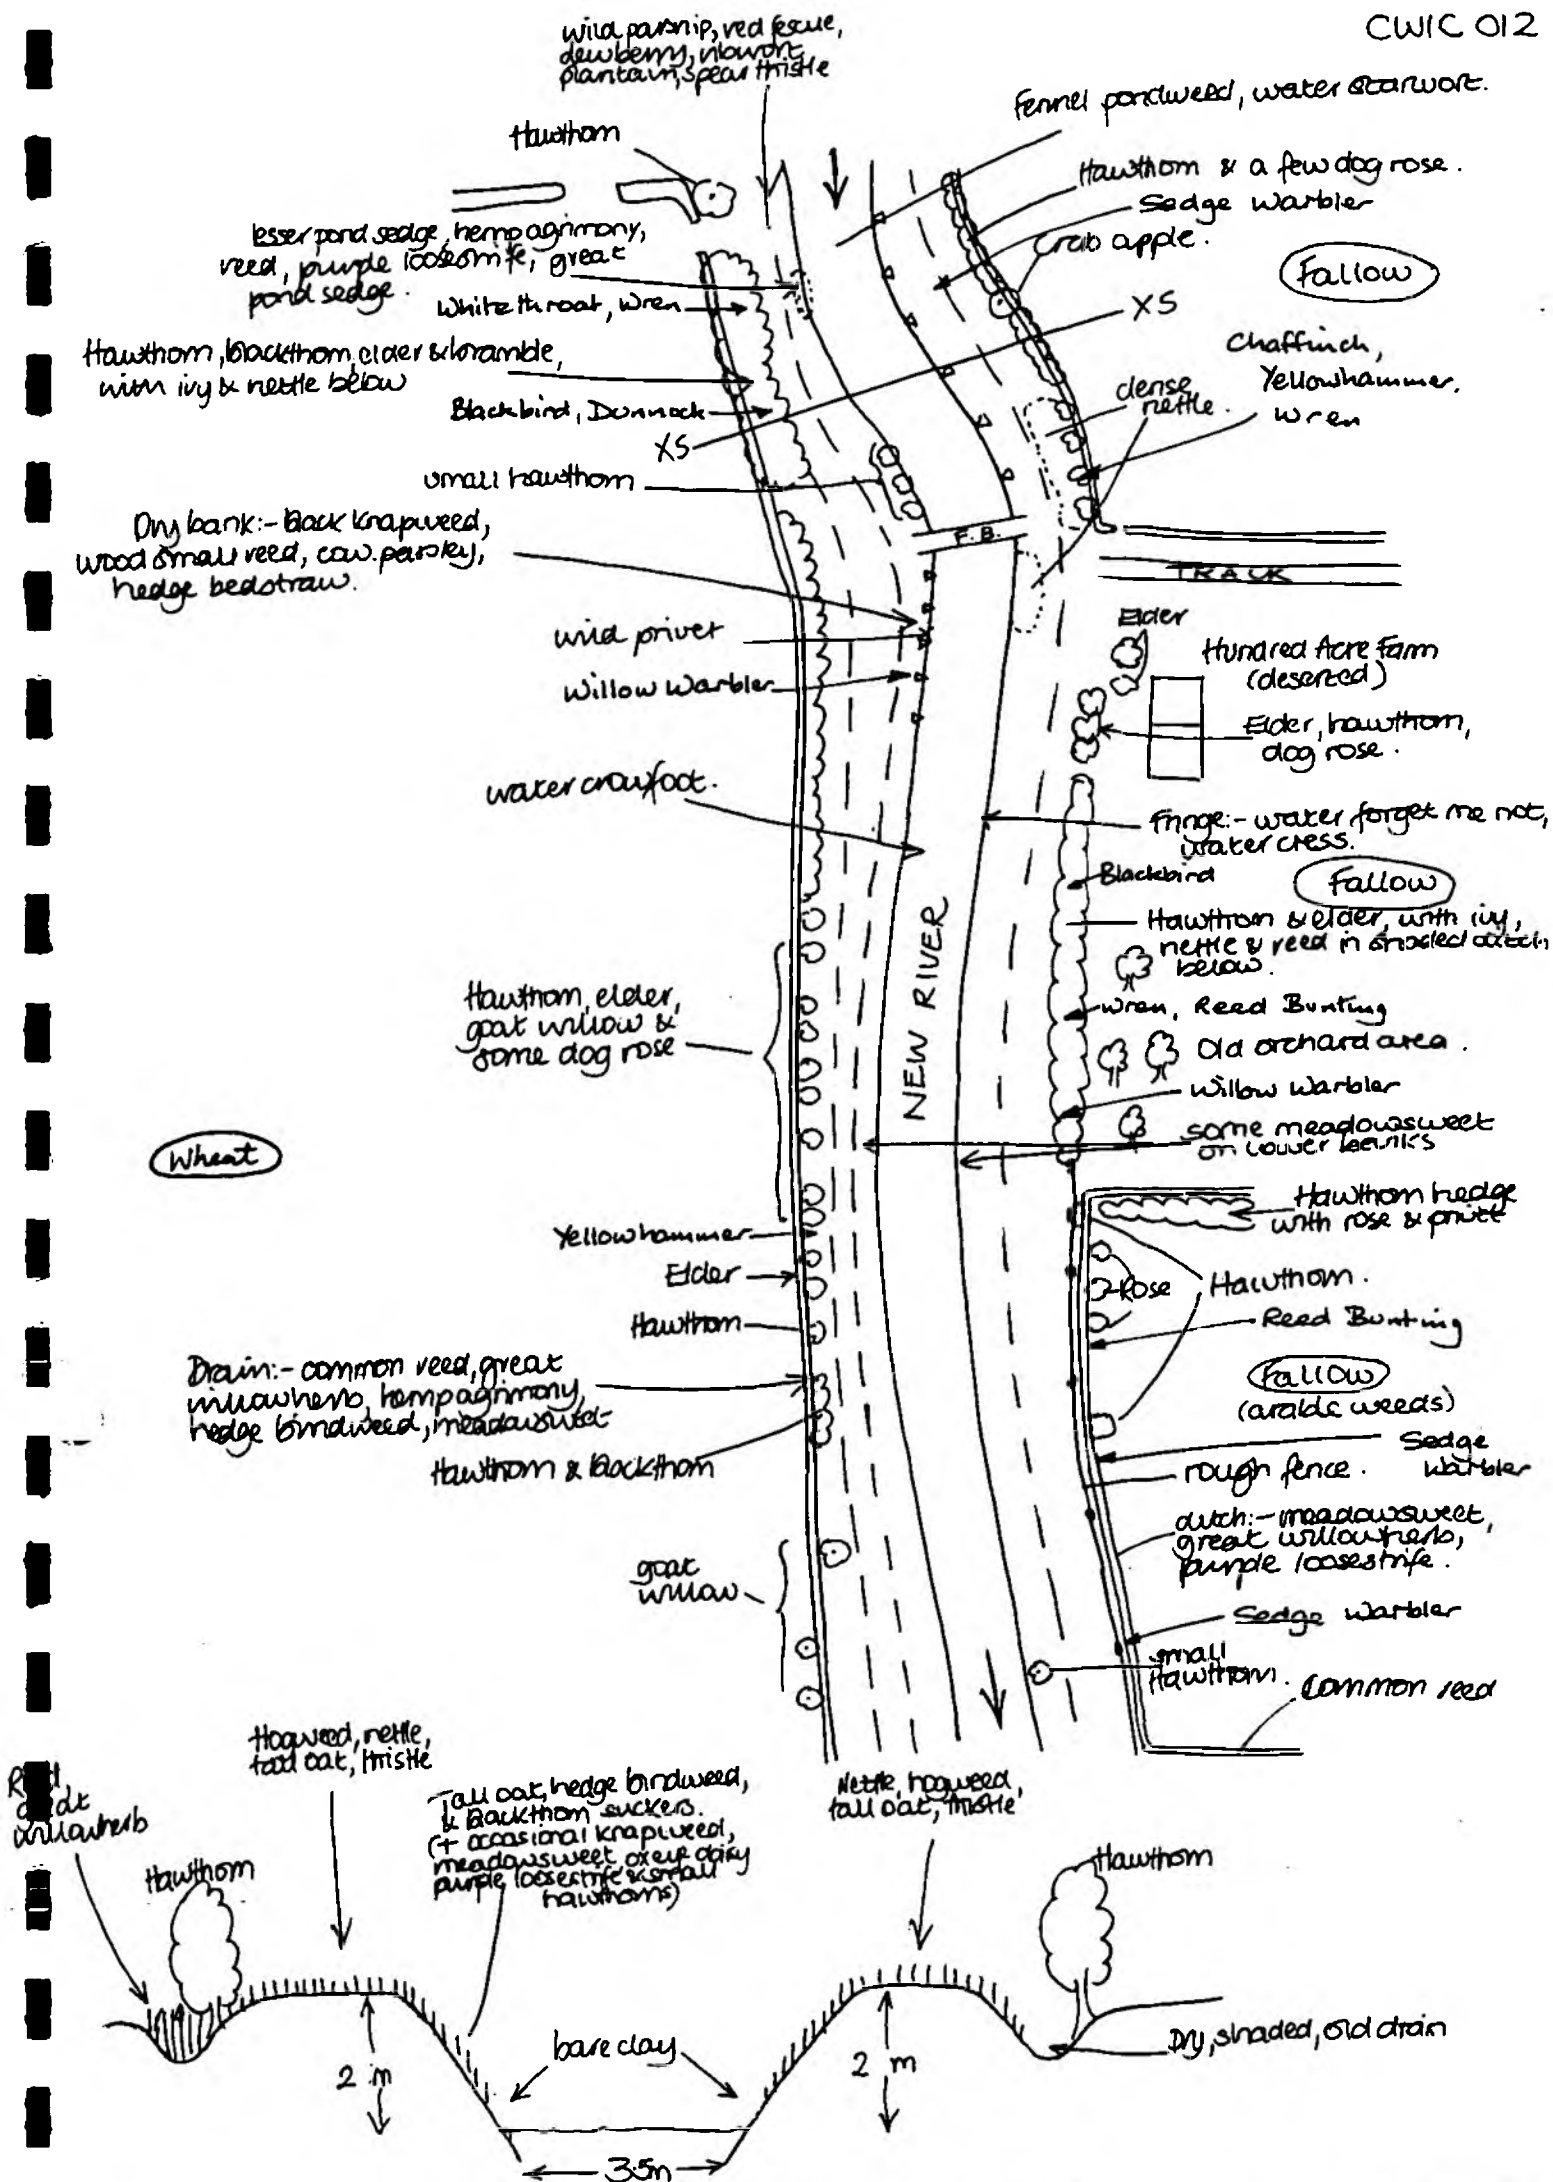 CWIC 012
wild parsnip, red fescue,
dewberry, ribwort
plantain, spear thistle
Fennel pondweed, water starwort.
Hawthorn
Hawthorn & a few dog rose.
Sedge Warbler
Crab apple.
Fallow
lesser pond sedge, hemp agrimony,
reed, purple loosestrife, great
pond sedge.
Whitethroat, Wren
XS
Hawthorn, blackthorn, elder & bramble,
with ivy & nettle below
Chaffinch,
Yellowhammer,
Wren
dense
nettle.
Blackbird, Dunnock
XS
small hawthorn
Dry bank:- Black knapweed,
wood small reed, cow parsley,
hedge bedstraw.
F.B.
TRACK
wild privet
Elder
Hundred Acre Farm
(deserted)
Willow Warbler
Elder, hawthorn,
dog rose.
water crowfoot.
Fringe:- water forget me not,
water cress.
Blackbird
Fallow
NEW RIVER
Hawthorn & elder, with ivy,
nettle & reed in shaded ditch
below.
Hawthorn, elder,
goat willow &
some dog rose
Wren, Reed Bunting
Old orchard area.
Willow Warbler
some meadowsweet
on lower banks
Wheat
Hawthorn hedge
with rose & privet
Yellowhammer
Elder
Rose
Hawthorn.
Hawthorn
Reed Bunting
Drain:- common reed, great
willowherb, hemp agrimony,
hedge bindweed, meadowsweet
Fallow
(arable weeds)
Hawthorn & Blackthorn
Sedge
Warbler
rough fence.
ditch:- meadowsweet,
great willowherb,
purple loosestrife.
goat
willow
Sedge Warbler
small
Hawthorn.
Common reed
Hogweed, nettle,
tall oat, thistle
willowherb
Tall oat, hedge bindweed,
& Blackthorn suckers.
(+ occasional knapweed,
meadowsweet oxeye daisy
purple loosestrife & small
hawthorns)
Nettle, hogweed,
tall oat, thistle
Hawthorn
Hawthorn
bare clay
Dry, shaded, old drain
2 m
2 m
3.5m